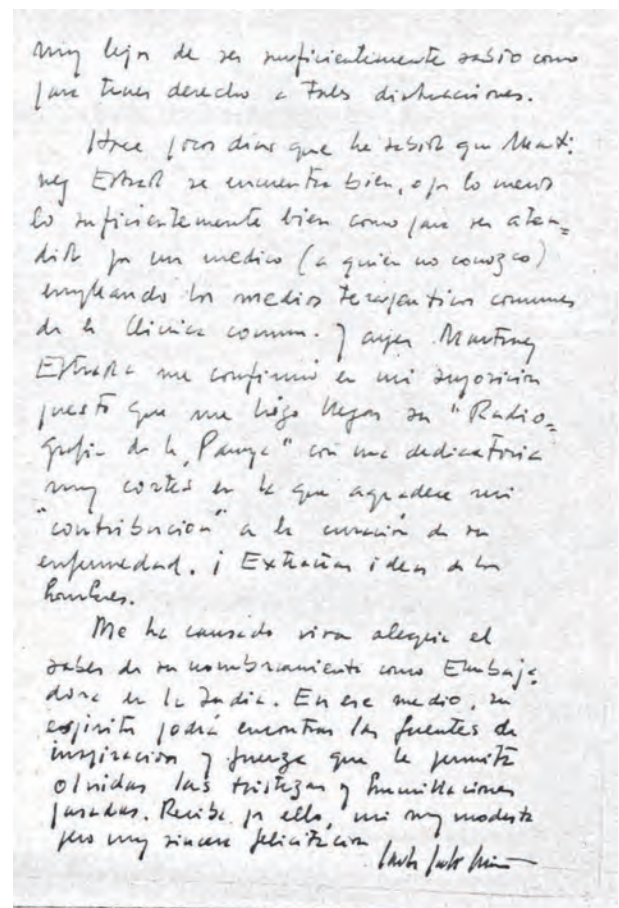 muy lejos de ser suficientemente sabio como
para tener derecho a tales distracciones.
Hace pocos días que he sabido que Martí-
nez Estrada se encuentra bien, o por lo menos
lo suficientemente bien como para ser aten=
dido por un médico (a quien no conozco)
empleando los medios terapéuticos comunes
de la clínica común. Y ayer Martínez
Estrada me confirmó en mi suposición
puesto que me hizo llegar su "Radio=
grafía de la Pampa" con una dedicatoria
muy cortés en la que agradece mi
"contribución" a la curación de su
enfermedad. ¡Extrañas ideas de los
hombres.
Me ha causado viva alegría el
saber de su nombramiento como Embaja-
dora en la India. En ese medio, su
espíritu podrá encontrar las fuentes de
inspiración y fuerza que le permita
olvidar las tristezas y humillaciones
pasadas. Reciba por ello, mi muy modesta
pero muy sincera felicitación